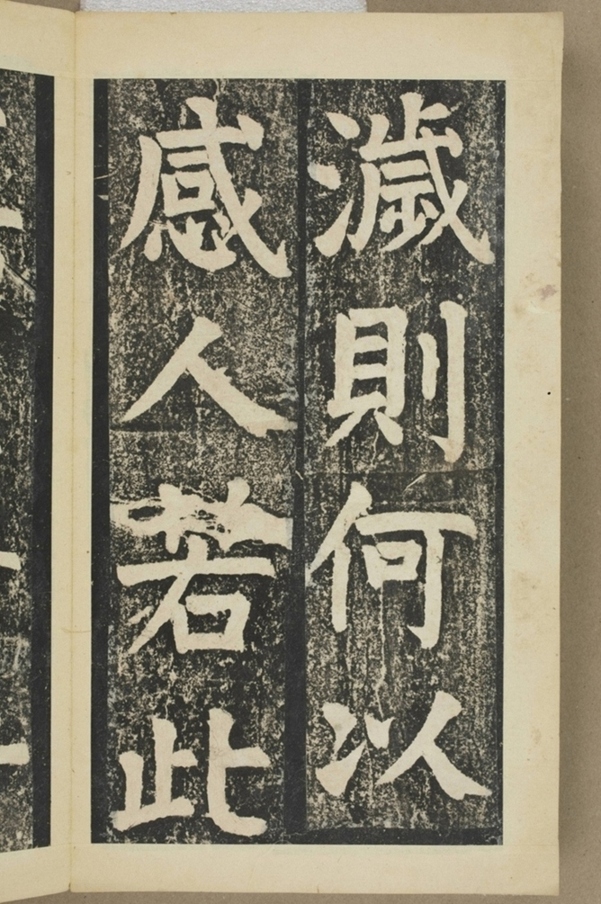 濊則何以
感人若此